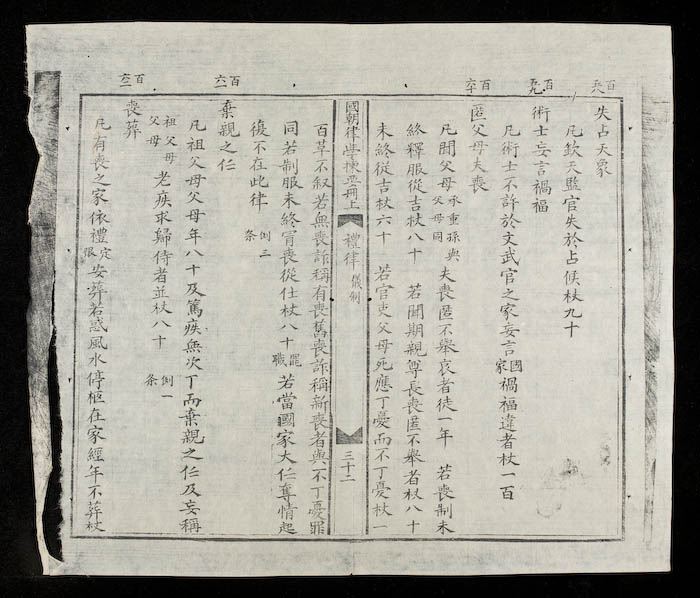 百
失占天象
凡欽天監官失於占候杖九十
百
術士妄言禍福
凡術士不許於文武官之家妄言國家禍福違者杖一百
百六十
匿父母夫喪
凡聞父母承重孫與父母同夫喪匿不舉哀者徒一年 若喪制未
終釋服從吉杖八十 若聞期親尊長喪匿不舉者杖八十
未終從吉杖六十 若官吏父母死應丁憂而不丁憂杖一
國朝律學揀要冊上 禮律 儀制 三十二
百革不叙若無喪詐稱有喪舊喪詐稱新喪者與不丁憂罪
同若制服未終冐喪從仕杖八十罷職若當國家大仕奪情起
復不在此律 例三条
百六一
棄親之仕
凡祖父母父母年八十及篤疾無次丁而棄親之仕及妄稱
祖父母父母老疾求歸侍者並杖八十 例一条
百六二
喪葬
凡有喪之家依禮定限安葬若惑風水停柩在家經年不葬杖